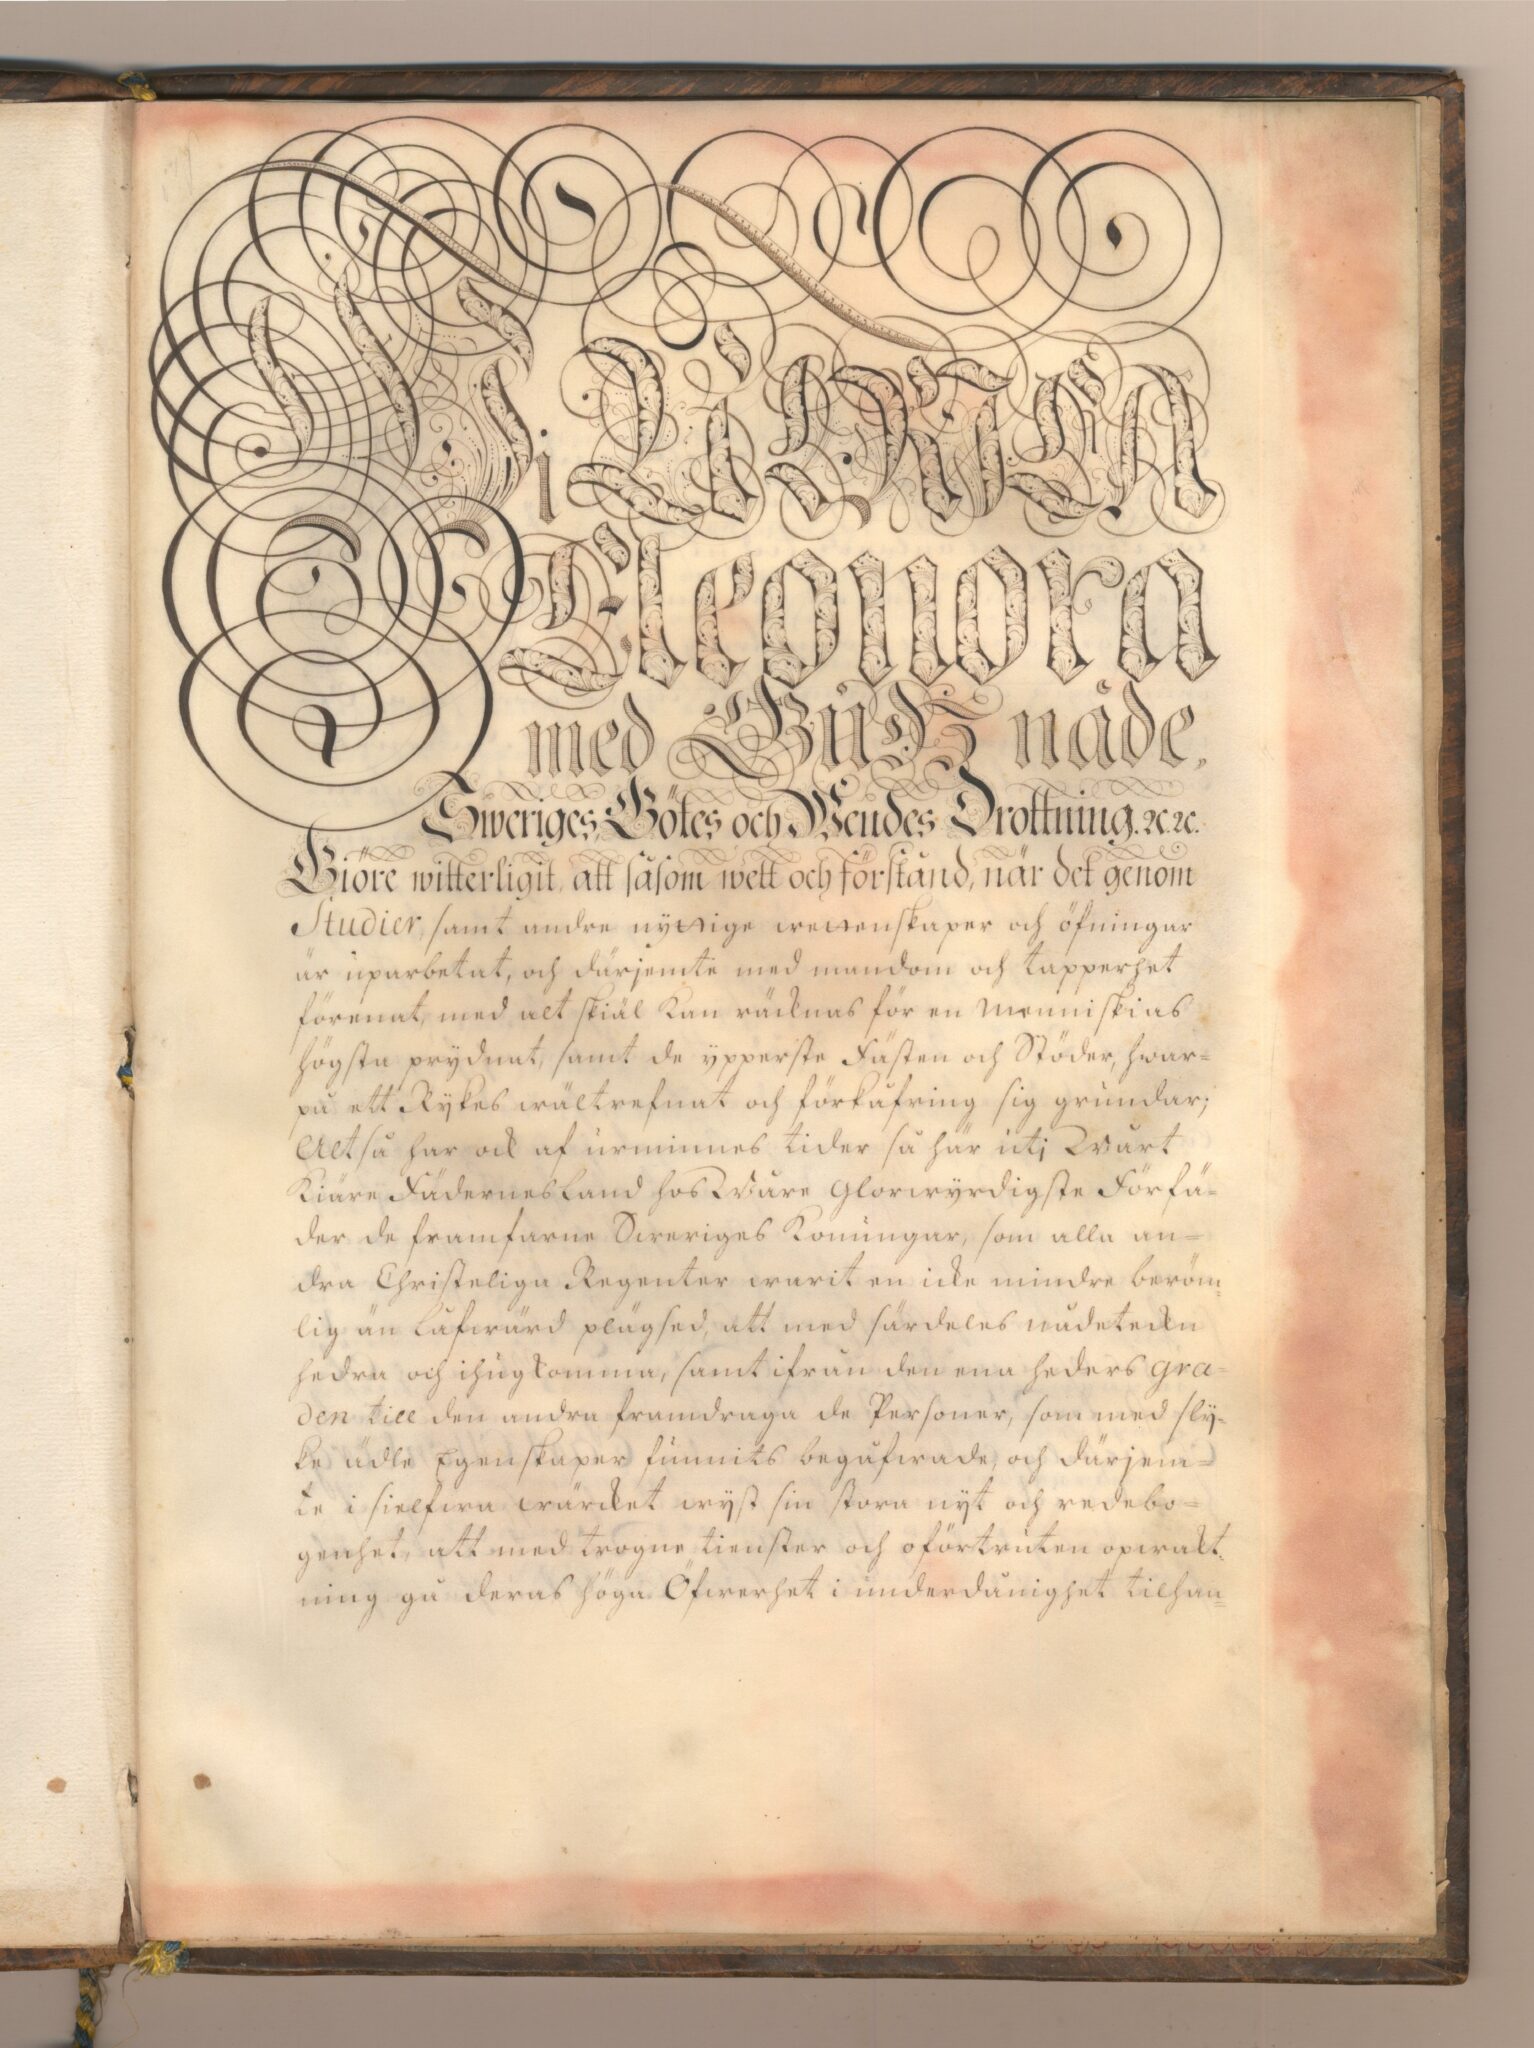 Wi Ulrica
Eleonora
med Gudz nåde,
Sweriges, Götes och Wendes Drottning. ꝛc. ꝛc.
Giöre witterligit, att såsom wett och förstånd, när det genom
Studier, samt andre nyttige wettenskaper och öfningar
är uparbetat, och därjemte med mandom och tapperhet
förenat, med alt skiäl kan räcknas för en Menniskias
högsta prydnat, samt de ypperste Fästen och Stöder, hwar=
på ett Rykes wältrefnat och förkåfring sig grundar;
Altså har ock af urminnes tider så här utj Wårt
Kiäre Fädernesland hos Wåre Glorwyrdigste Förfä=
der de framfarne Sweriges Konungar, som alla an=
dra Christeliga Regenter warit en icke mindre beröm=
lig än låfwärd plägsed, att med särdeles nådeteckn
hedra och ihugkomma, samt ifrån den ena heders gra=
den till den andra framdraga de Personer, som med sly=
ke ädle Egenskaper funnits begåfwade, och därjem=
te i sielfwa wärcket wyst sin stora nyt och redebo=
genhet, att med trogne tienster och oförtruten opwackt=
ning gå deras höga Öfwerhet i underdånighet tilhan=